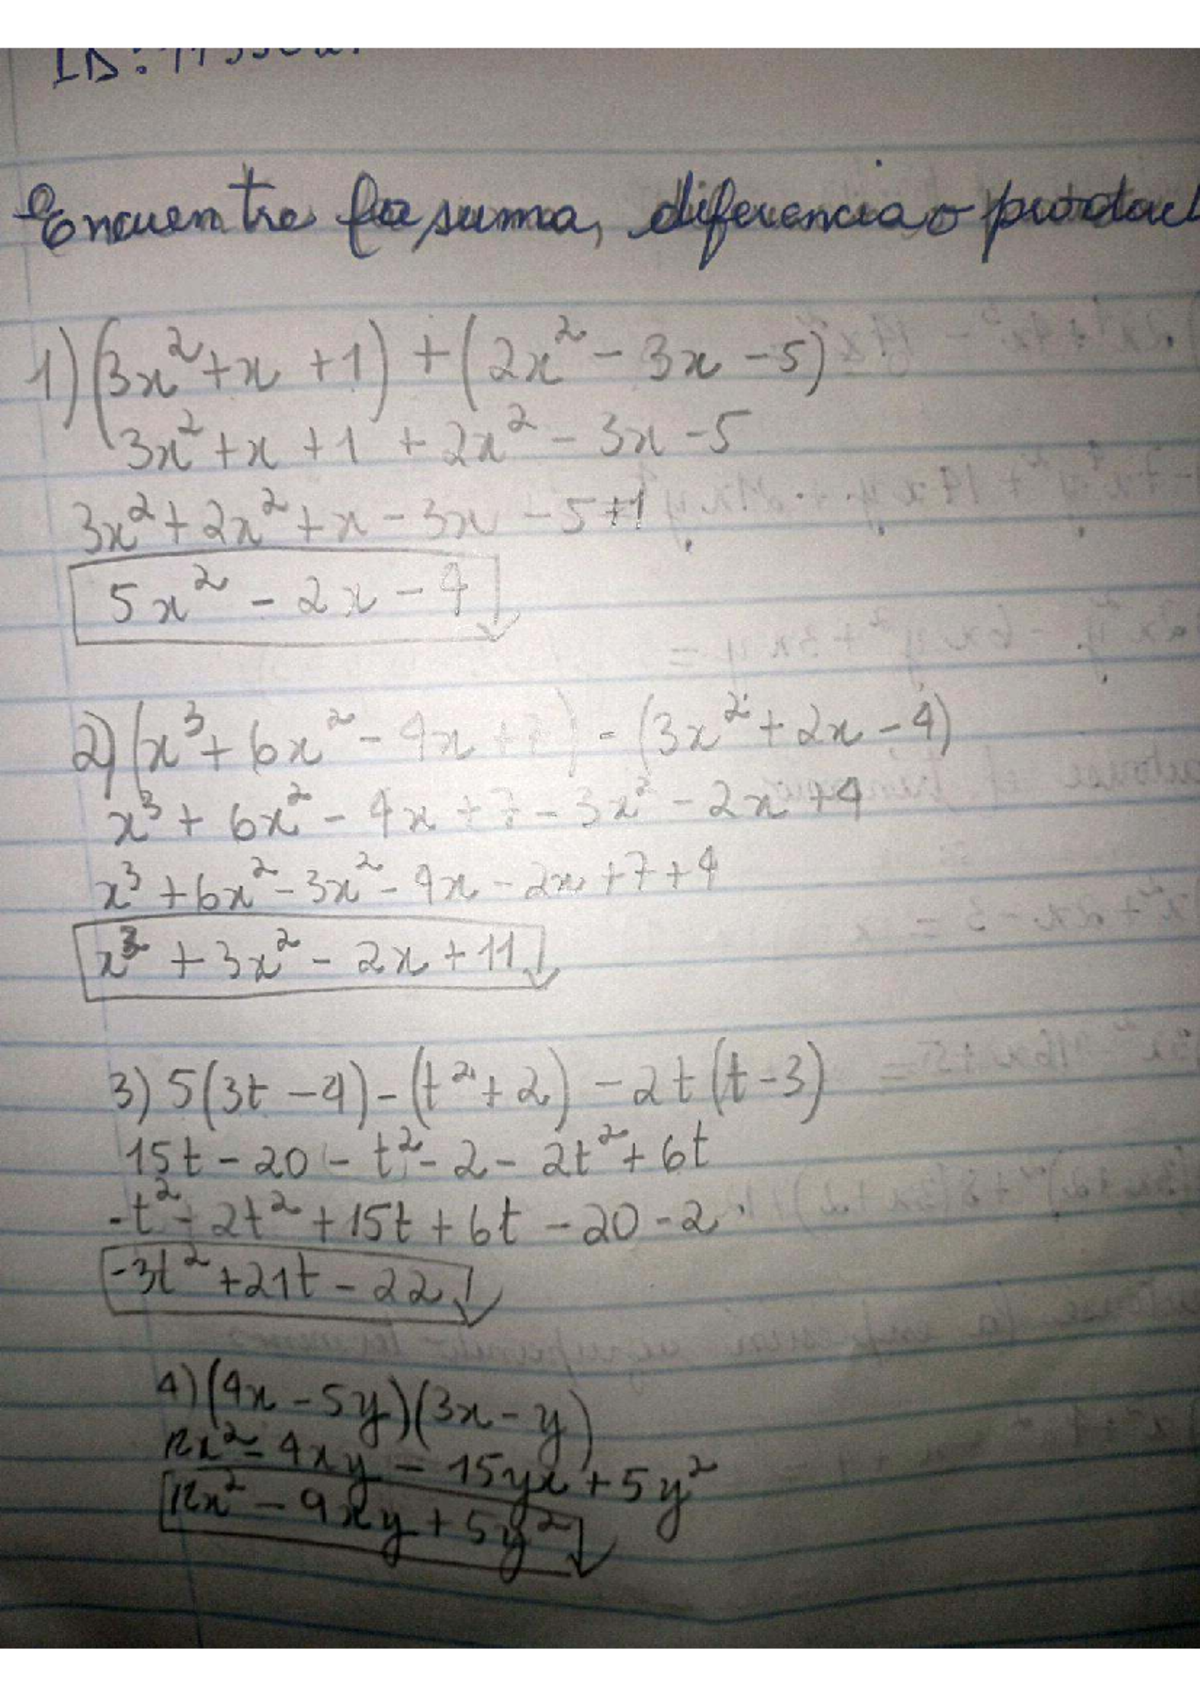 Encuentre la suma, diferencia o product
1) (3x² + x + 1) + (2x² - 3x - 5)
3x² + x + 1 + 2x² - 3x - 5
3x² + 2x² + x - 3x - 5 + 1
5x² - 2x - 4
2) (x³ + 6x² - 4x + 7) - (3x² + 2x - 4)
x³ + 6x² - 4x + 7 - 3x² - 2x + 4
x³ + 6x² - 3x² - 4x - 2x + 7 + 4
x³ + 3x² - 2x + 11
3) 5(3t - 4) - (t² + 2) - 2t(t - 3)
15t - 20 - t² - 2 - 2t² + 6t
-t² - 2t² + 15t + 6t - 20 - 2
-3t² + 21t - 22
4) (4x - 5y)(3x - y)
12x² - 4xy - 15yx + 5y²
12x² - 9xy + 5y²